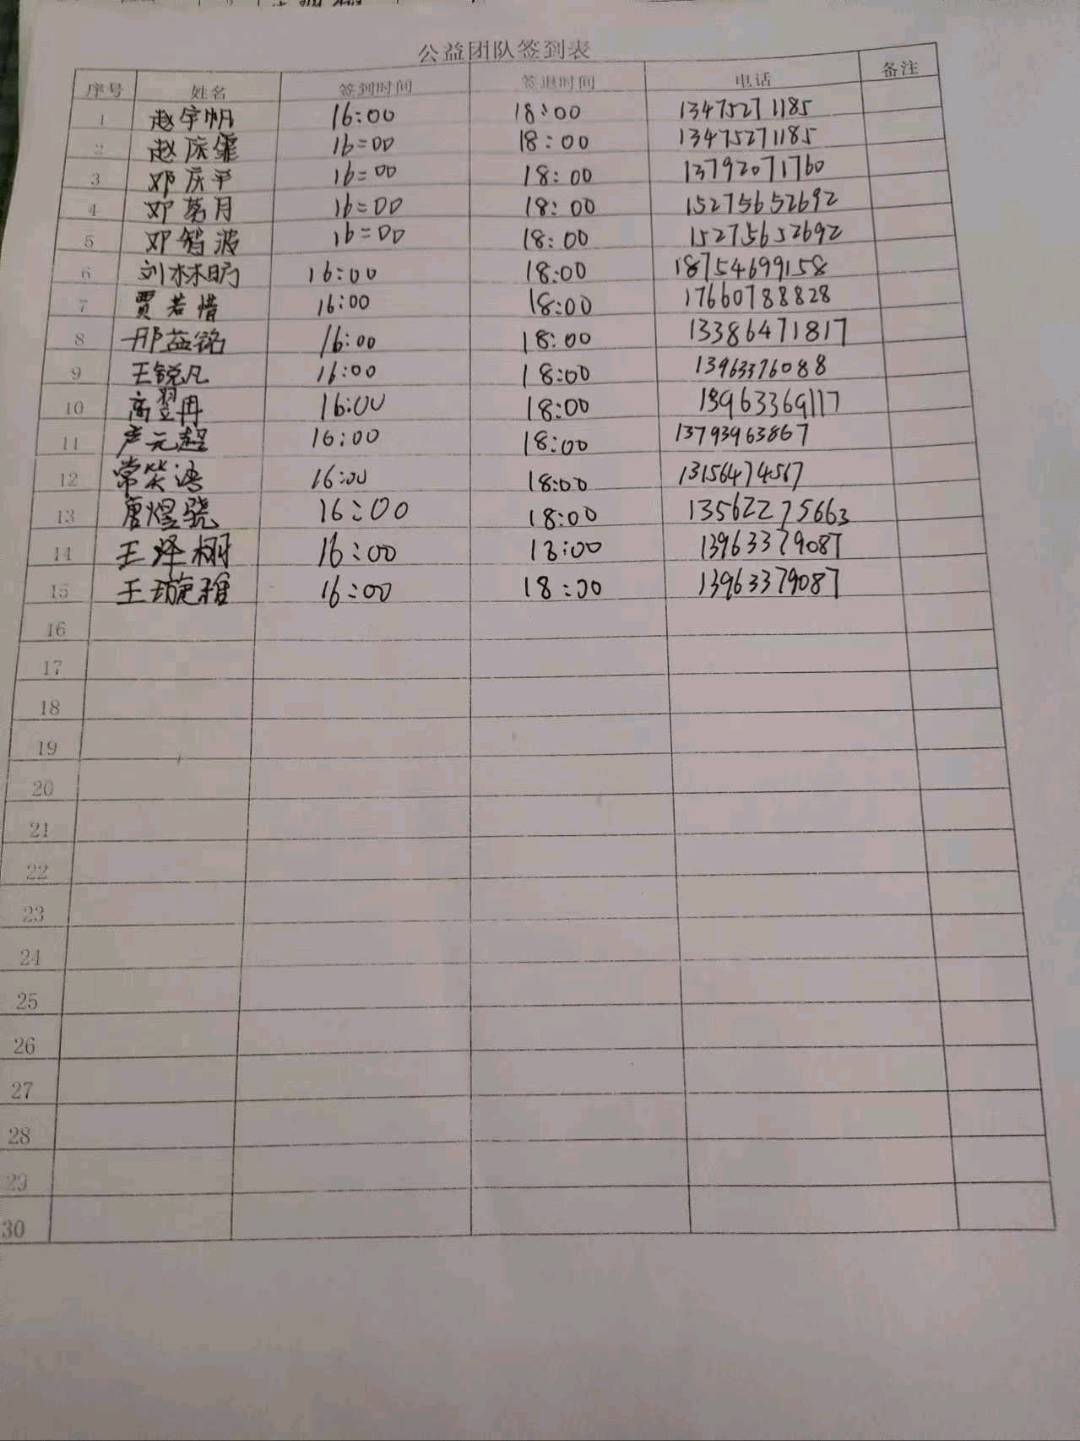 公益团队签到表
序号 姓名 签到时间 签退时间 电话 备注
1 赵宇帆 16:00 18:00 13475271185
2 赵庆霏 16:00 18:00 13475271185
3 邓庆平 16:00 18:00 13792071760
4 邓茗月 16:00 18:00 15275652692
5 邓智波 16:00 18:00 15275652692
6 刘林昀 16:00 18:00 18754699158
7 贾若惜 16:00 18:00 17660788828
8 邢益铭 16:00 18:00 13386471817
9 王锐凡 16:00 18:00 13963376088
10 高翌冉 16:00 18:00 13963369117
11 芦元超 16:00 18:00 13793963867
12 常笑语 16:00 18:00 13156474567
13 唐煜骁 16:00 18:00 13562275663
14 王泽栩 16:00 18:00 13963379087
15 王璇雅 16:00 18:00 13963379087
16
17
18
19
20
21
22
23
24
25
26
27
28
29
30